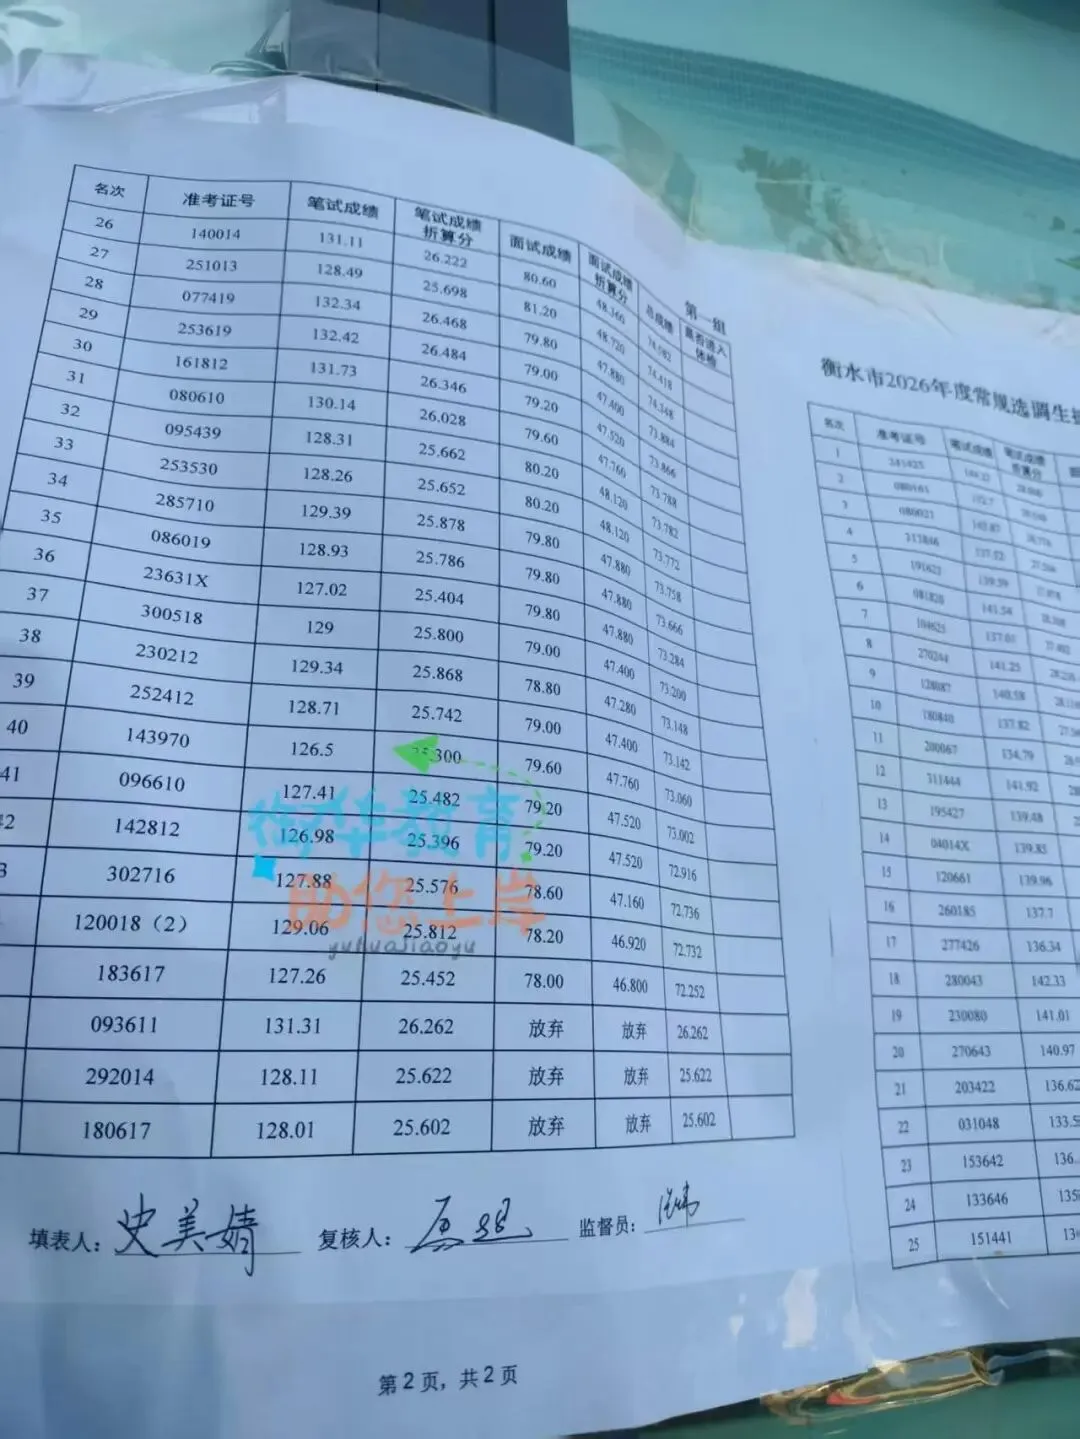 第一组
名次 准考证号 笔试成绩 笔试成绩折算分 面试成绩 面试成绩折算分 总成绩 是否进入体检
26 140014 131.11 26.222 80.60 48.360 74.582
27 251013 128.49 25.698 81.20 48.720 74.418
28 077419 132.34 26.468 79.80 47.880 74.348
29 253619 132.42 26.484 79.00 47.400 73.884
30 161812 131.73 26.346 79.20 47.520 73.866
31 080610 130.14 26.028 79.60 47.760 73.788
32 095439 128.31 25.662 80.20 48.120 73.782
33 253530 128.26 25.652 80.20 48.120 73.772
34 285710 129.39 25.878 79.80 47.880 73.758
35 086019 128.93 25.786 79.80 47.880 73.666
36 23631X 127.02 25.404 79.80 47.880 73.284
37 300518 129 25.800 79.00 47.400 73.200
38 230212 129.34 25.868 78.80 47.280 73.148
39 252412 128.71 25.742 79.00 47.400 73.142
40 143970 126.5 25.300 79.60 47.760 73.060
41 096610 127.41 25.482 79.20 47.520 73.002
2 142812 126.98 25.396 79.20 47.520 72.916
3 302716 127.88 25.576 78.60 47.160 72.736
120018（2） 129.06 25.812 78.20 46.920 72.732
183617 127.26 25.452 78.00 46.800 72.252
093611 131.31 26.262 放弃 放弃 26.262
292014 128.11 25.622 放弃 放弃 25.622
180617 128.01 25.602 放弃 放弃 25.602
填表人：史美婧 复核人： 监督员：
第2页，共2页
衡华教育
助您上岸
yuhuajiaoyu
衡水市2026年度常规选调生
名次 准考证号 笔试成绩 笔试成绩折算分
1
2
3
4
5
6
7
8 270244 141.25
9 128087 140.58
10 180840 137.82
11 200067 134.79
12 311444 141.92
13 195427 139.48
14 04014X 139.85
15 120661 139.96
16 260185 137.7
17 277426 136.34
18 280043 142.33
19 230080 141.01
20 270643 140.97
21 203422 136.62
22 031048 133.5
23 153642 136.
24 133646 135
25 151441 13